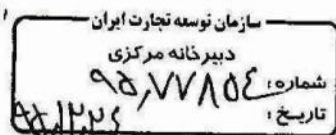 سازمان توسعه تجارت ایران
دبیرخانه مرکزی
شماره: ۹۵/۷۷۸۵۴
تاریخ: ۹۵,۱۲,۲۴